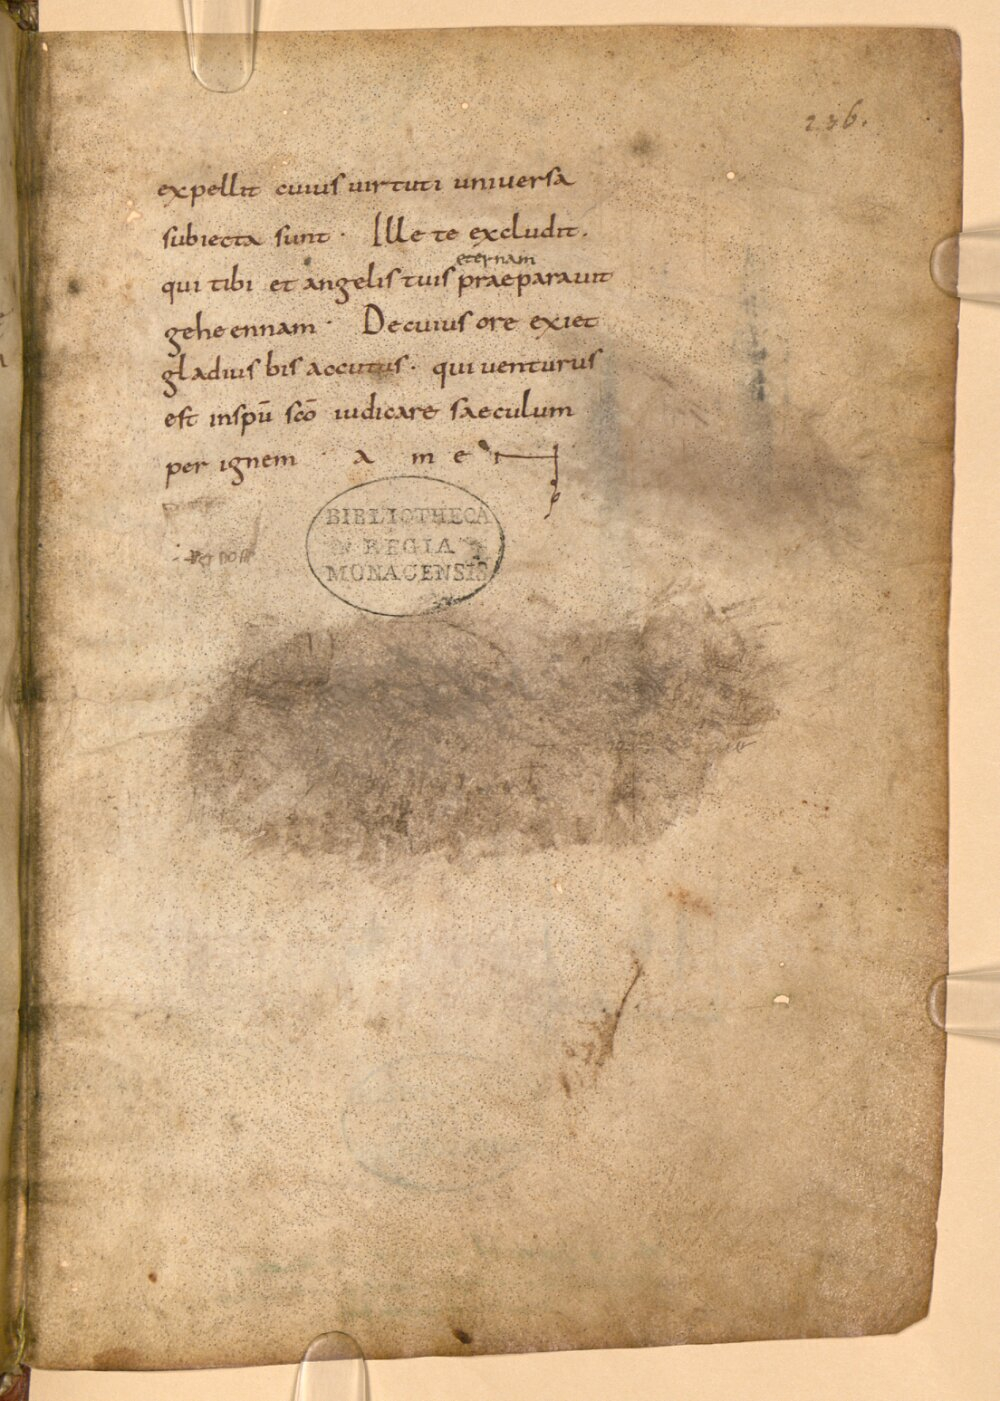 236.
expellit cuius uirtuti uniuersa
subiecta sunt · Ille te excludit.
eternam
qui tibi et angelis tuis praeparauit
geheennam · De cuius ore exiet
gladius bis accutus · qui uenturus
est inspū scō iudicare saeculum
per ignem · a m e n
BIBLIOTHECA
REGIA
MONACENSIS